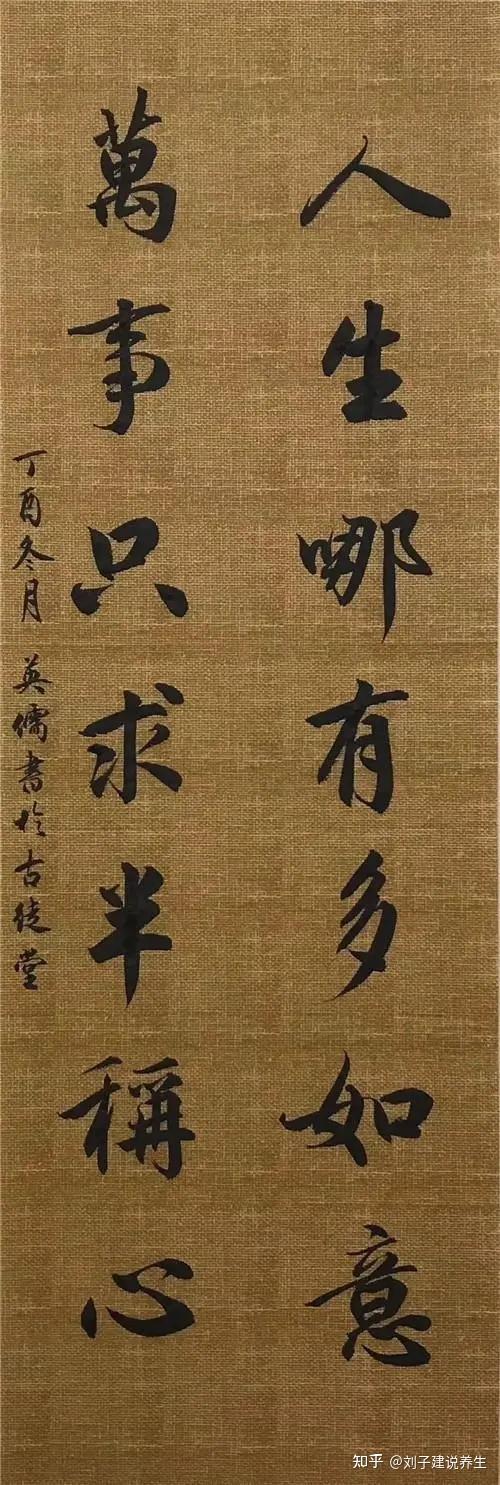 人生哪有多如意
萬事只求半稱心
丁酉冬月 英儒書於古徒堂
知乎 @刘子建说养生